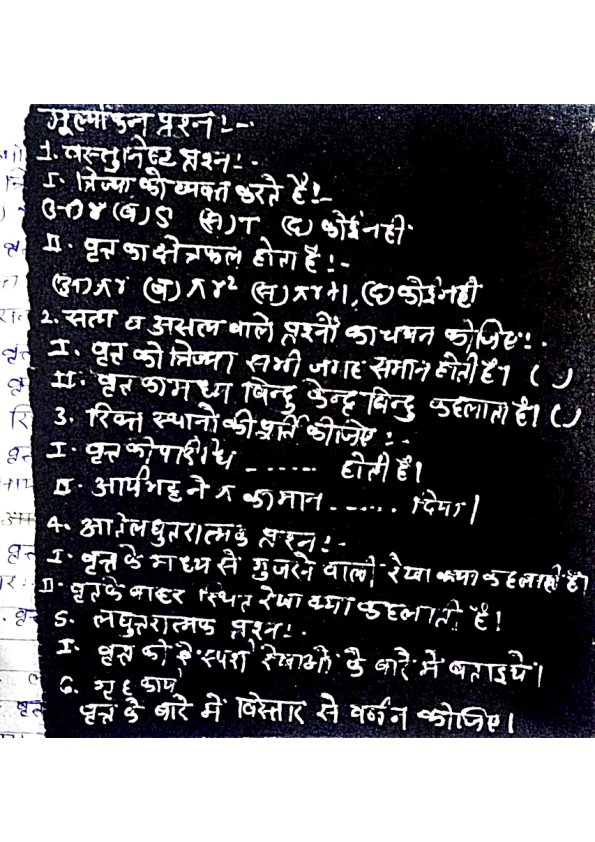 मूल्यांकन प्रश्न:-
1. वस्तुनिष्ट प्रश्न:-
I. त्रिज्या को व्यक्त करते है:-
(अ) r (ब) S (स) T (द) कोई नही
II. वृत्त का क्षेत्रफल होता है:-
(अ) πr (ब) πr² (स) πr+1, (द) कोई नही
2. सत्य व असत्य वाले प्रश्नों का चयन कीजिए:-
I. वृत्त की त्रिज्या सभी जगह समान होती है। ( )
II. वृत्त का मध्य बिन्दु केन्द्र बिन्दु कहलाता है। ( )
3. रिक्त स्थानों की पूर्ति कीजिए:-
I. वृत्त की परिधि ------ होती है।
II. आर्यभट्ट ने π का मान ------ दिया।
4. अतिलघुतरात्मक प्रश्न:-
I. वृत्त के माध्य से गुजरने वाली रेखा क्या कहलाती है।
II. वृत्त के बाहर स्थित रेखा क्या कहलाती है।
5. लघुतरात्मक प्रश्न:-
I. वृत्त की स्पर्श रेखाओं के बारे में बताइये।
6. गृह कार्य
वृत्त के बारे में विस्तार से वर्णन कीजिए।